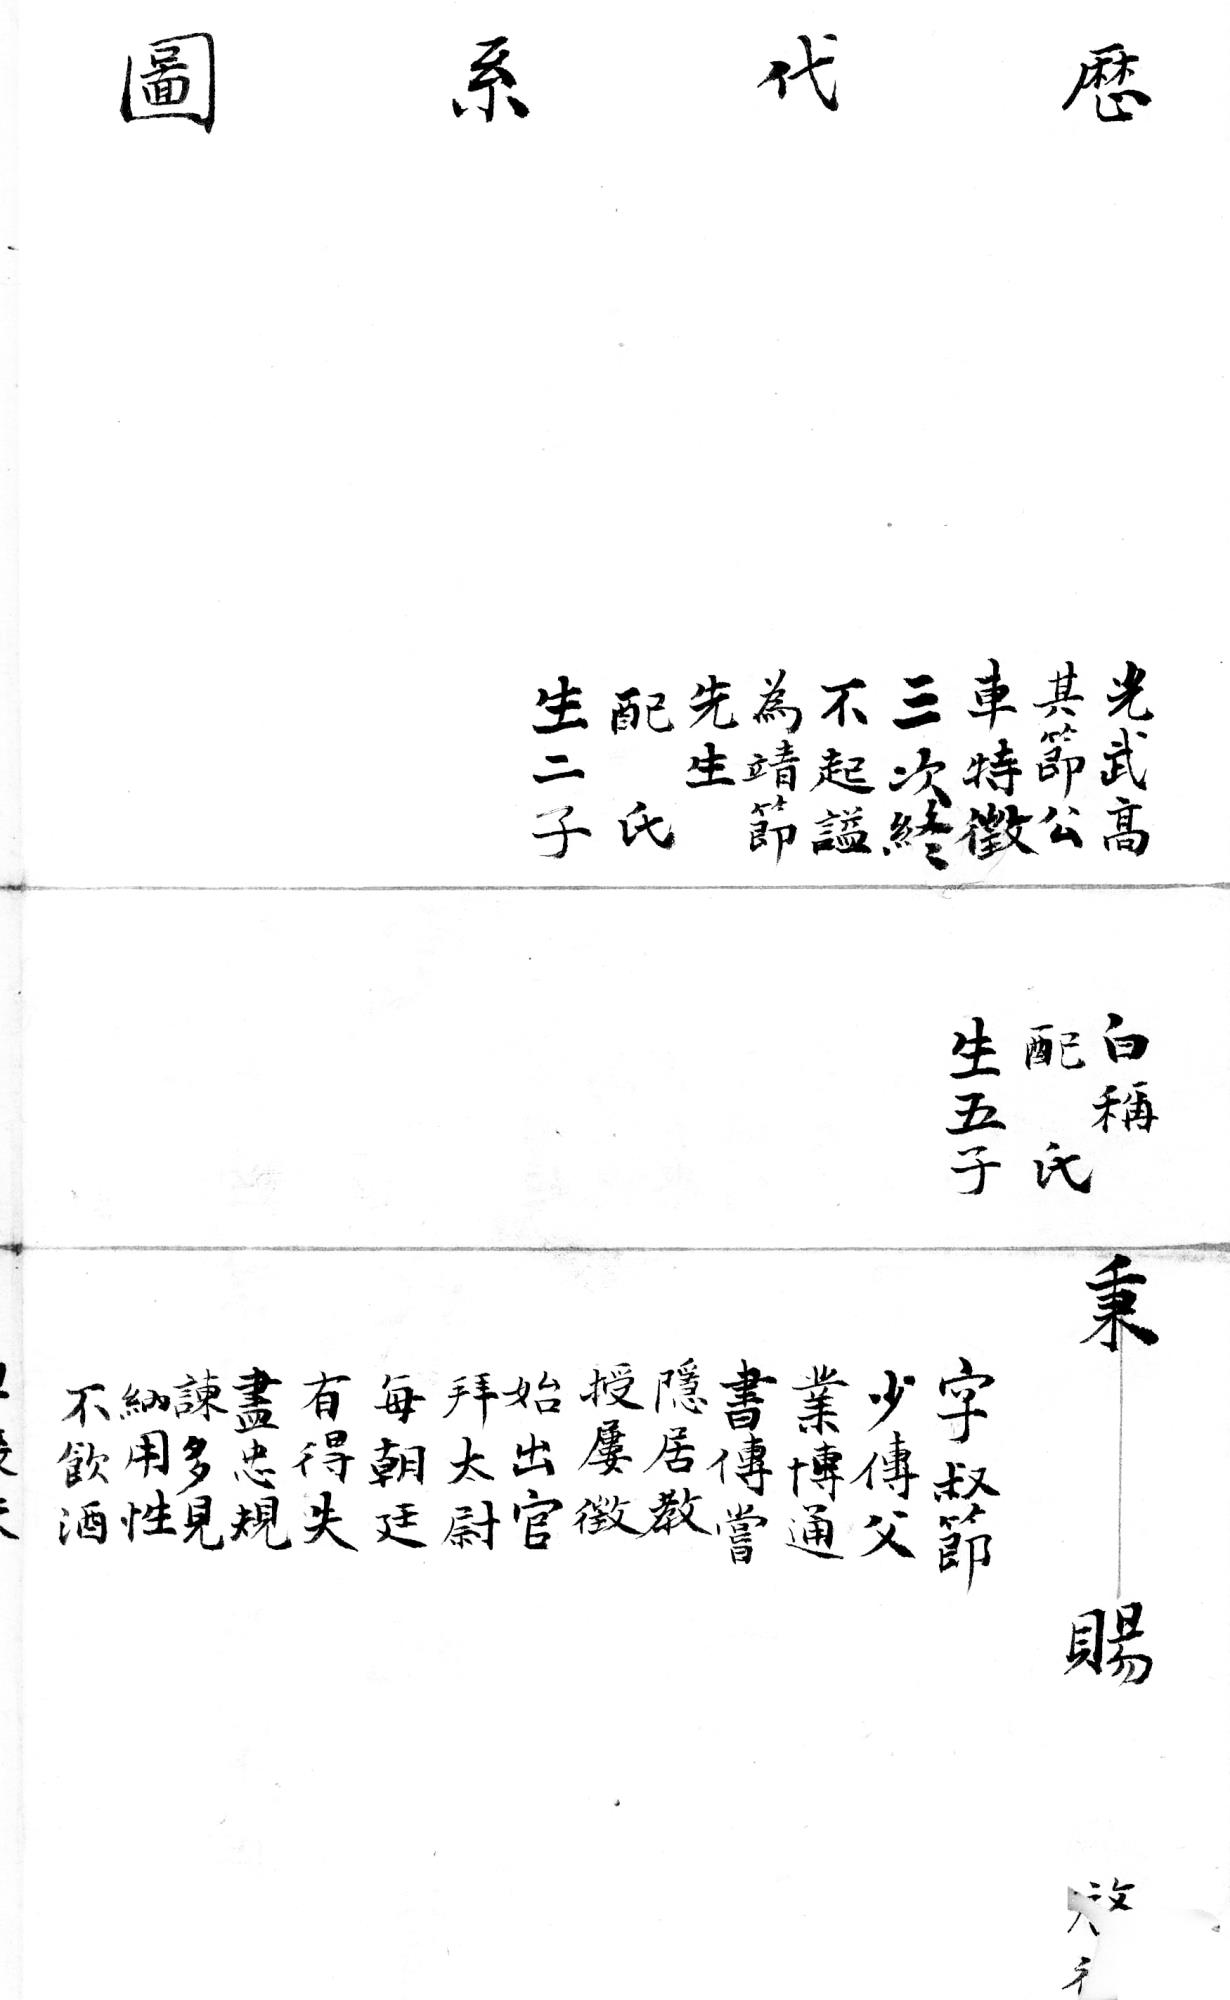 歴代系圖
光武高
其節公
車特徵
三次終
不起謚
為靖節
先生
配　氏
生二子
白稱
配　氏
生五子
秉
賜
字叔節
少傳父
業博通
書傳嘗
隱居教
授屢徵
始出官
拜太尉
每朝廷
有得失
盡忠規
諫多見
納用性
不飲酒